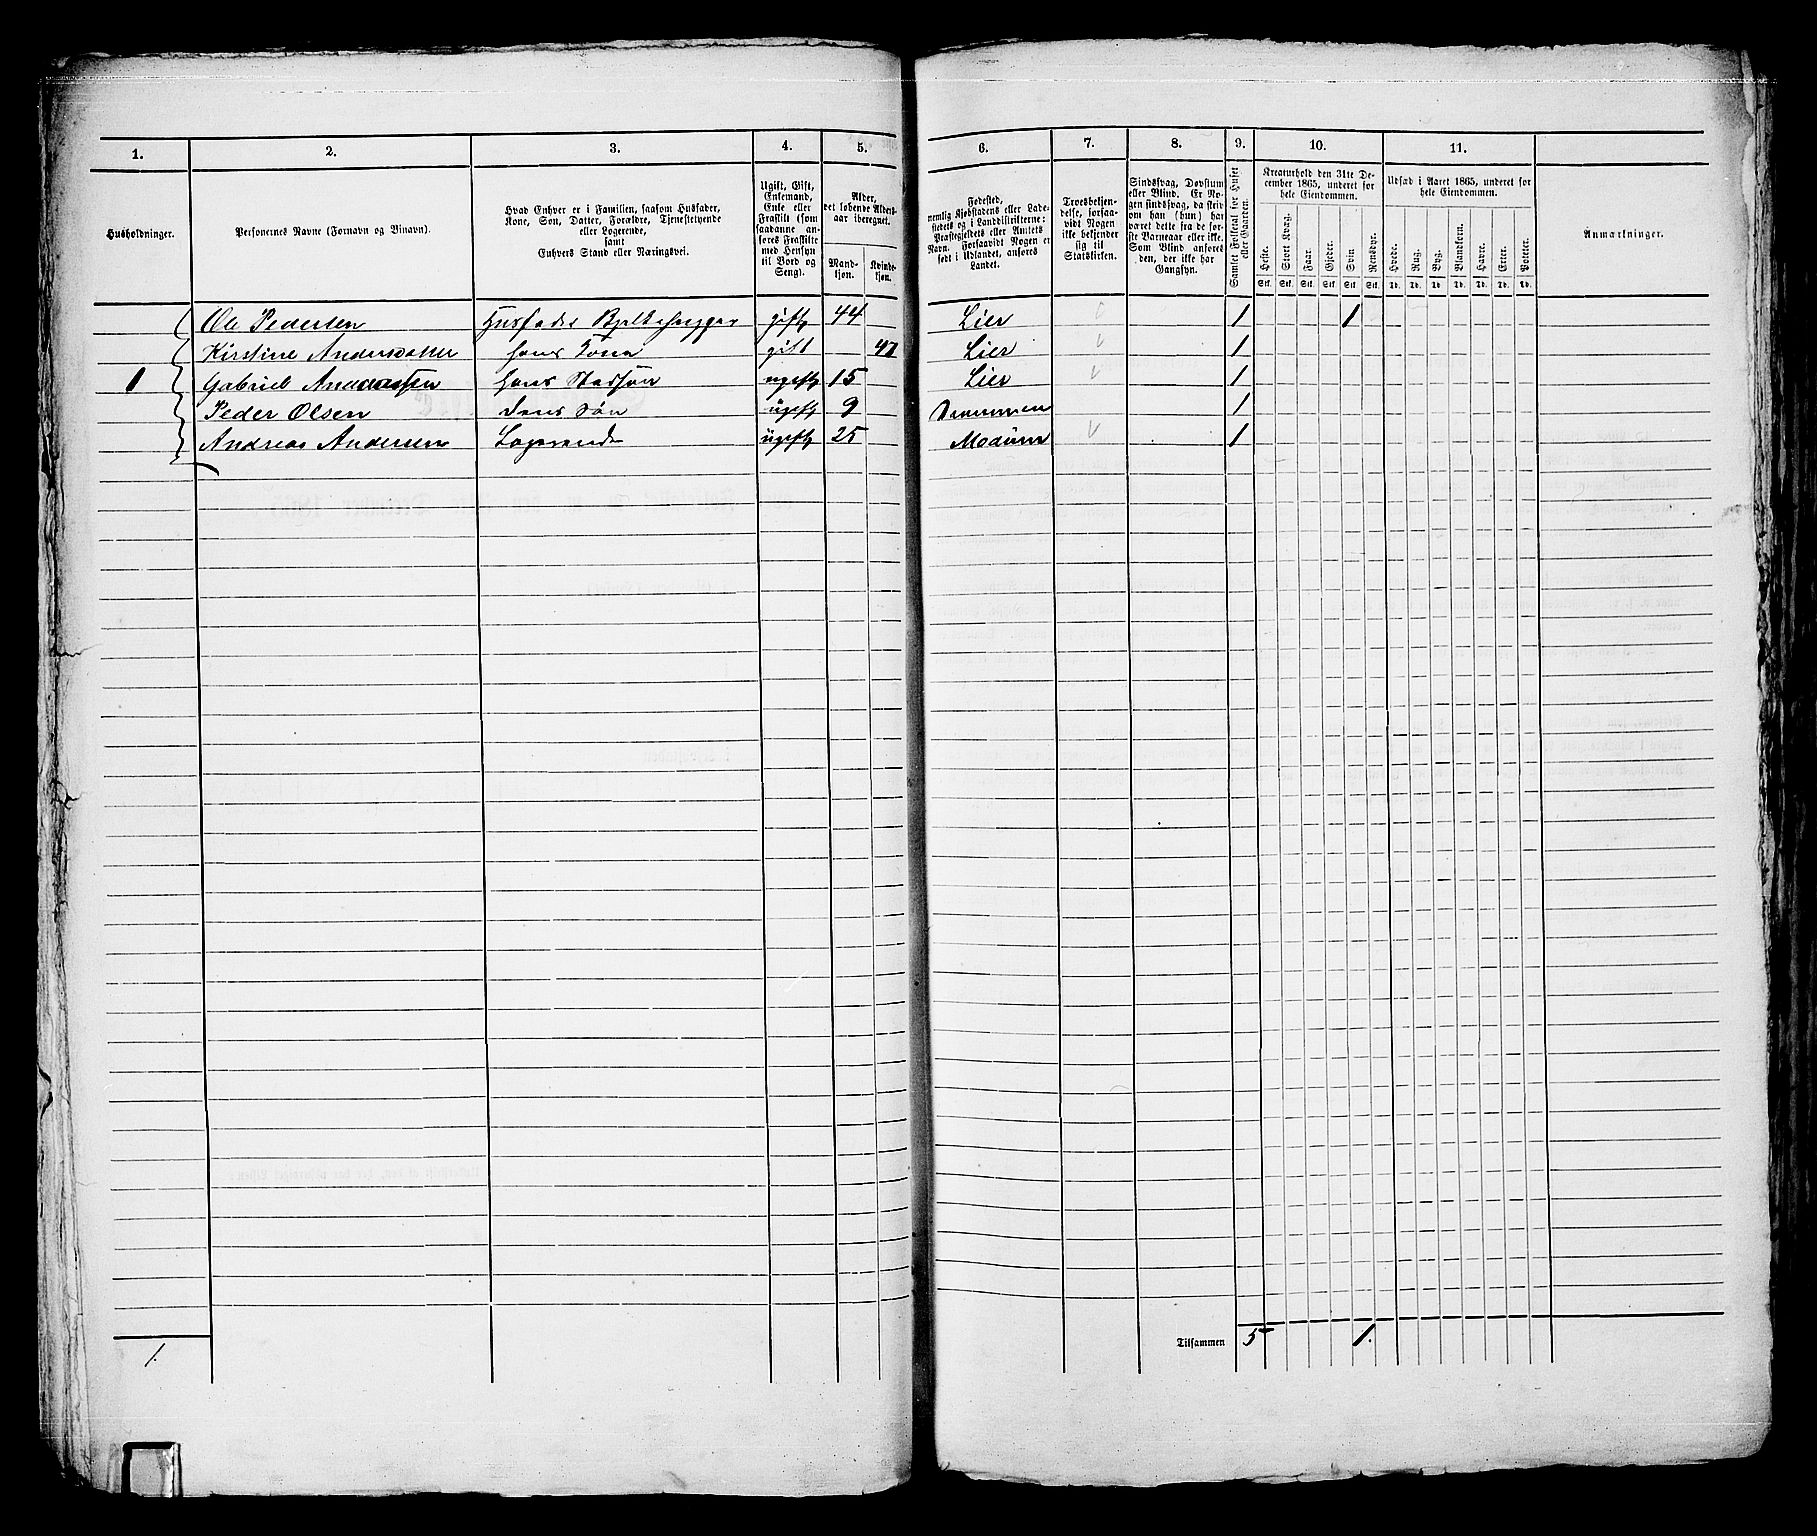 1. 2. 3. 4. 5. 6. 7. 8. 9. 10. 11.
Husholdninger.
Personernes Navne (Fornavn og Tilnavn).
Hvad Enhver er i Familien, saasom Husfader,
Kone, Søn, Datter, Forældre, Tjenestetyende
eller Logerende,
samt
Enhvers Stand eller Næringsvei.
Ugift, Gift,
Enkemand,
Enke eller
Fraskilt (som
saadanne an-
føres Fraskilte
med Hensyn
til Bord og
Seng).
Alder,
det løbende Alders-
aar iberegnet.
Mand-
kjøn.
Kvinde-
kjøn.
Fødested,
nemlig Kjøbstadens eller Lade-
stedets og i Landdistrikterne:
Præstegjeldets eller Amtets
Navn. Forsaavidt Nogen er
født i Udlandet, anføres
Landet.
Troesbekjen-
delse, forsaa-
vidt Nogen
ikke bekjender
sig til
Statskirken.
Sindssvag, Døvstum
eller Blind. Er No-
gen sindssvag, da skriv
om han (hun) har
været dette fra de før-
ste Barneaar eller ikke.
Som Blind anføres
den, der ikke har
Gangsyn.
Samlet Folketal for Huset
eller Gaarden.
Kreaturhold den 31te De-
cember 1865, underet for
hele Eiendommen.
Heste. Stort Kvæg. Faar. Gjeder. Svin Rensdyr.
Stk. Stk. Stk. Stk. Stk Stk.
Udsæd i Aaret 1865, underet for
hele Eiendommen.
Hvede. Rug. Byg. Blandkorn. Havre. Erter. Poteter.
Td. Td. Td Td. Td. Td. Td.
Anmærkninger.
Ole Pedersen Husfader Bjelkehugger gift 44 Lier 1 1
Kirstine Andersdatter hans Kone gift 47 Lier 1
1 Gabriel Andreassen hans Stedsøn ugift 15 Lier 1
Peder Olsen Deres Søn ugift 9 Drammen 1
Andreas Andersen Logerende ugift 25 Modum 1
1. Tilsammen 5 1.